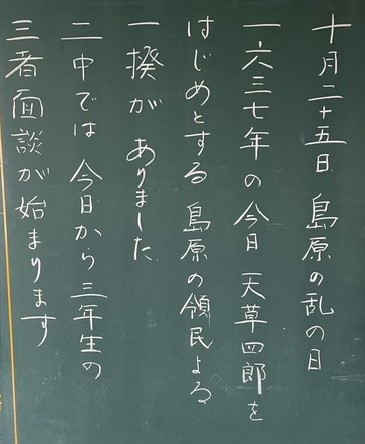 十月二十五日 島原の乱の日
一六三七年の今日 天草四郎を
はじめとする 島原の領民よる
一揆が ありました
二中では 今日から 三年生の
三者面談が始まります